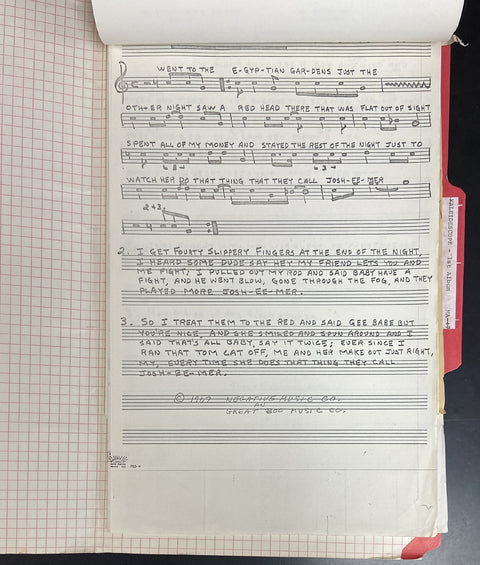 WENT TO THE E-GYP-TIAN GAR-DENS JUST THE
OTH-ER NIGHT SAW A RED HEAD THERE THAT WAS FLAT OUT OF SIGHT
SPENT ALL OF MY MONEY AND STAYED THE REST OF THE NIGHT JUST TO
3 3
WATCH HER DO THAT THING THAT THEY CALL JOSH-EE-MER
2+3.
2. I GET FOURTY SLIPPERY FINGERS AT THE END OF THE NIGHT,
I HEARD SOME DUDE SAY HEY MY FRIEND LETS YOU AND
ME FIGHT; I PULLED OUT MY ROD AND SAID BABY HAVE A
FIGHT, AND HE WENT BLOW, GONE THROUGH THE FOG, AND THEY
PLAYED MORE JOSH-EE-MER.
3. SO I TREAT THEM TO THE RED AND SAID GEE BABE BUT
YOU'RE NICE, AND SHE SMILED AND SPUN AROUND AND I
SAID THAT'S ALL BABY, SAY IT TWICE; EVER SINCE I
RAN THAT TOM CAT OFF, ME AND HER MAKE OUT JUST RIGHT,
MY, EVERY TIME SHE DOES THAT THING THEY CALL
JOSH-EE-MER.
© 1967 NEGATIVE MUSIC CO.
GREAT MUSIC CO.
KALEIDOSCOPE - 1st Album